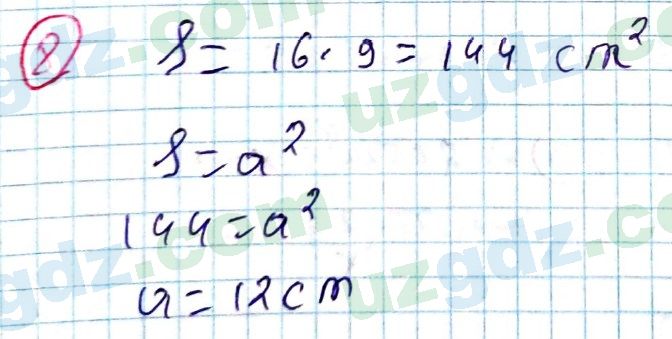 8 S = 16 · 9 = 144 cm²
S = a²
144 = a²
a = 12 cm
uzgdz.com